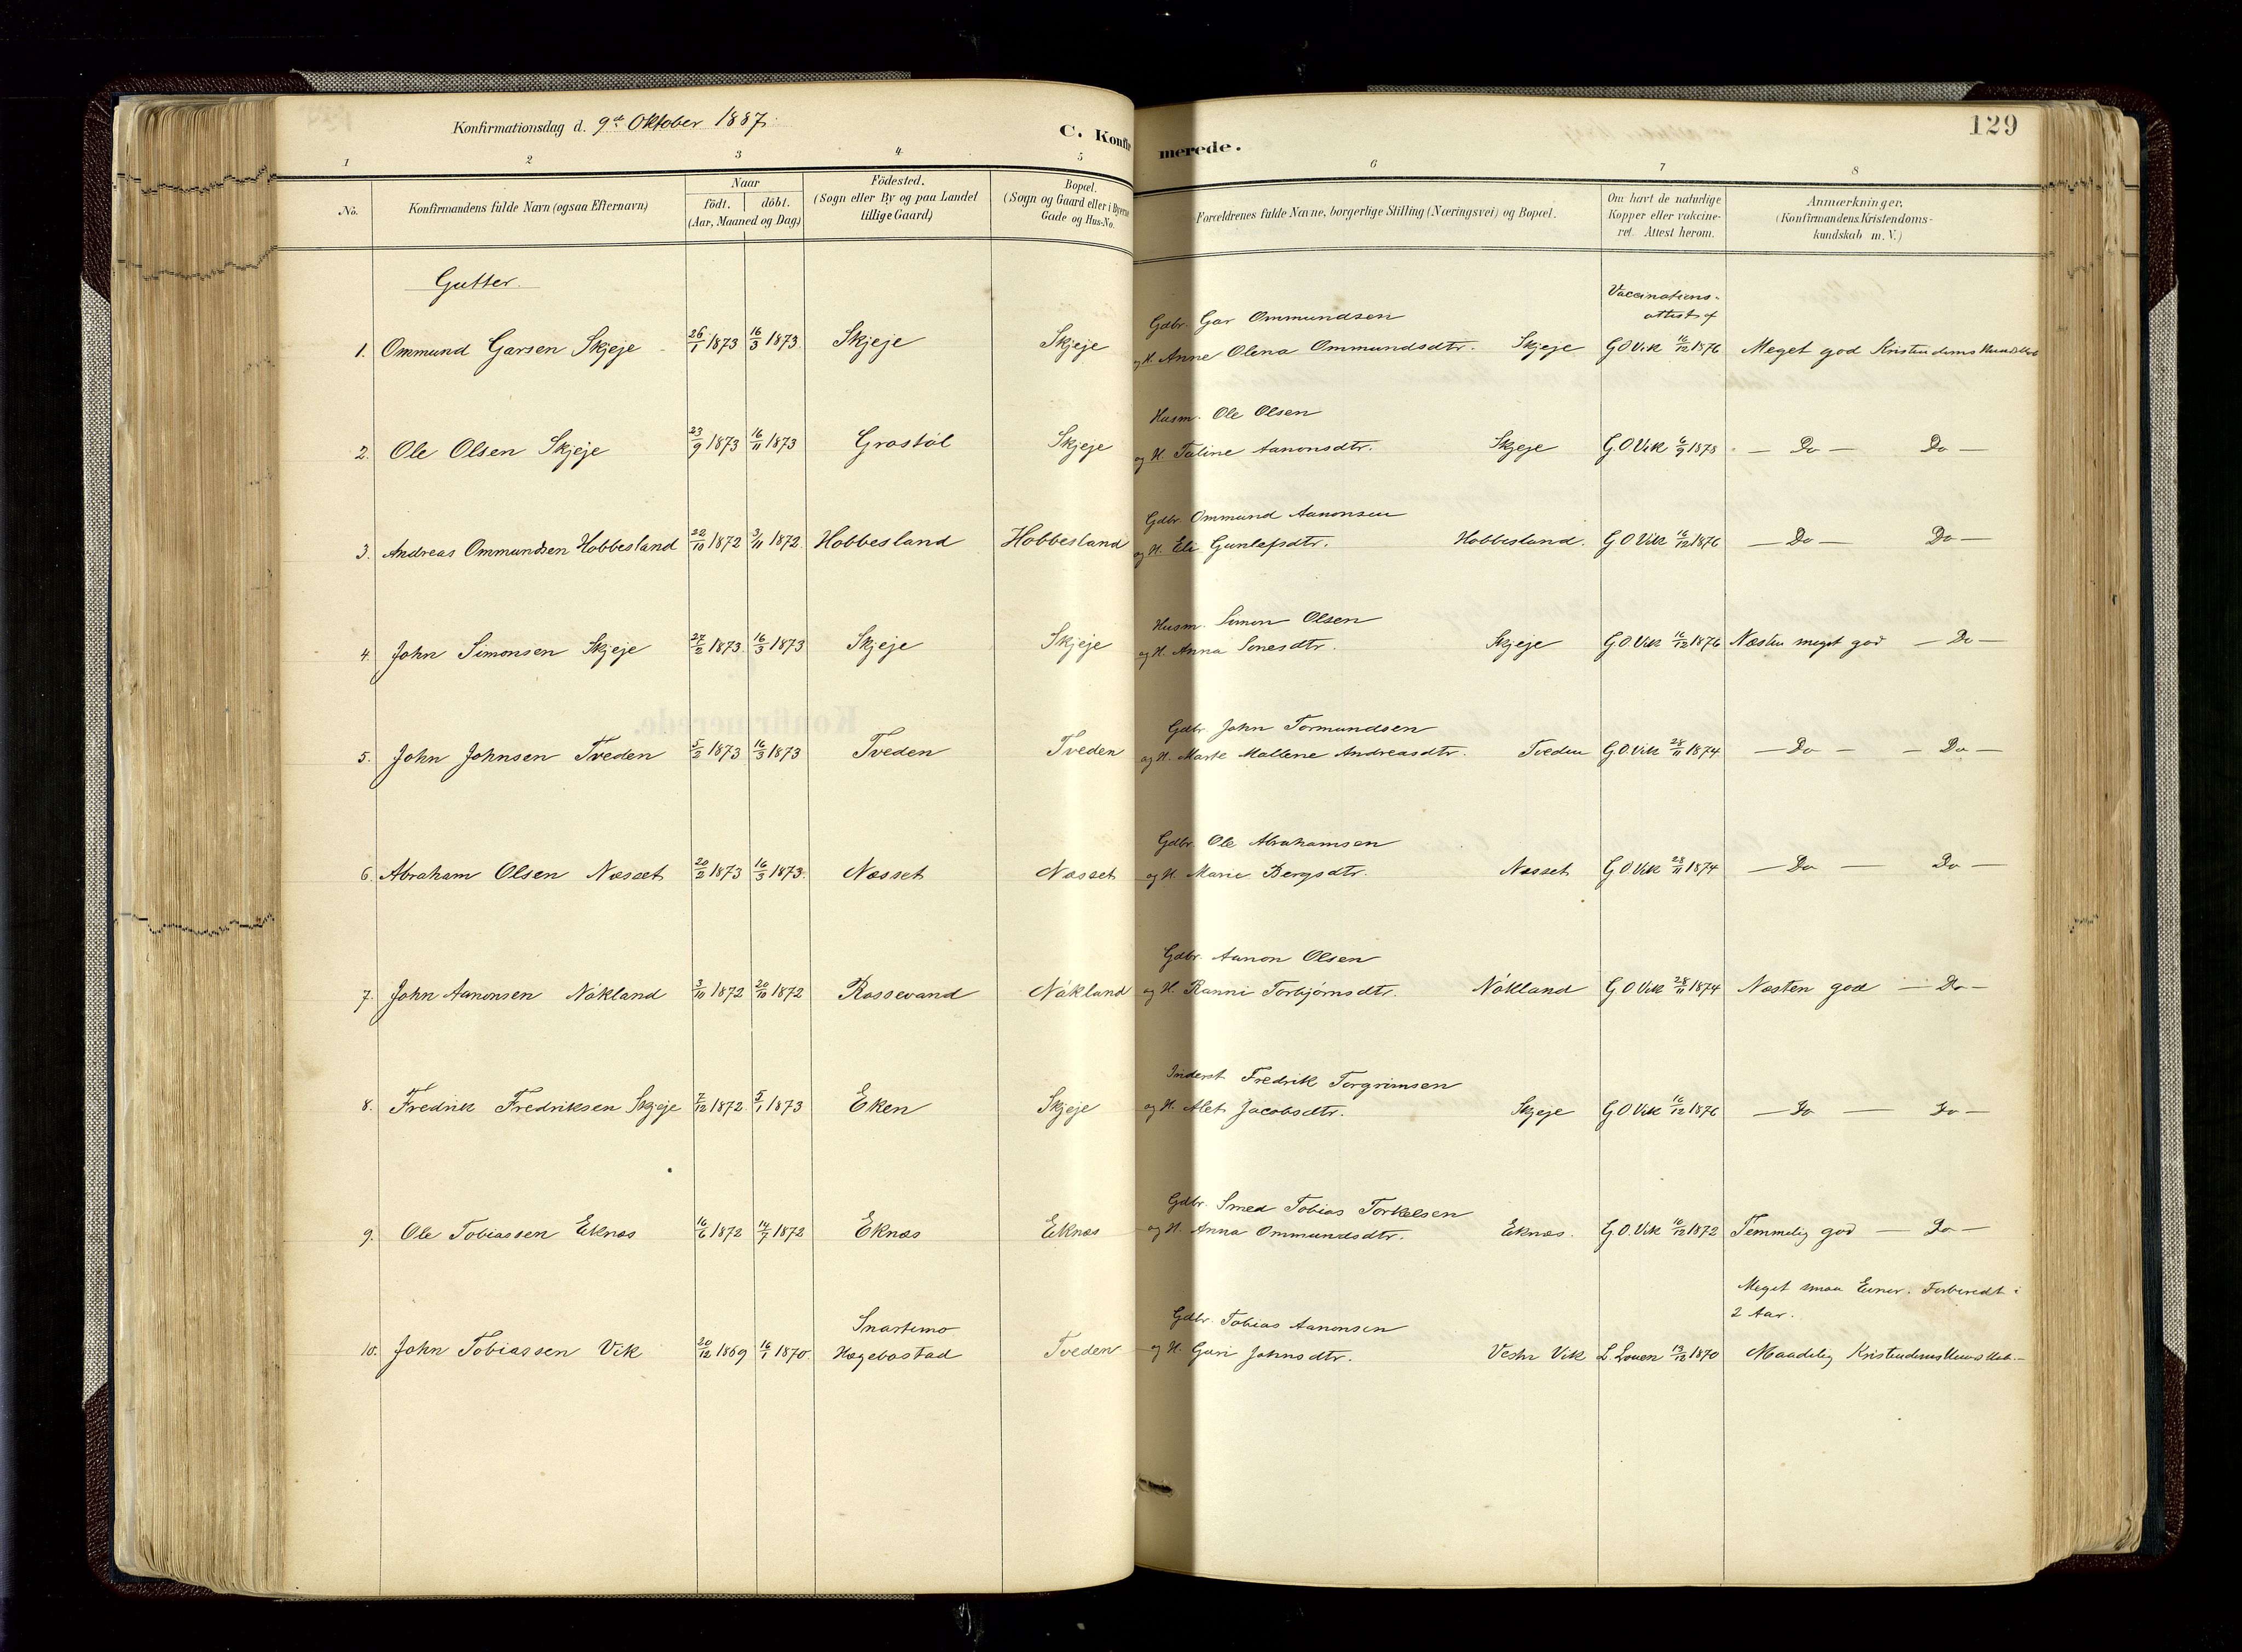 Konfirmationsdag d. 9de Oktober 1887.
C. Konfirmerede.
129
1 2 3 4 5 6 7 8
No.
Konfirmandens fulde Navn (ogsaa Efternavn)
Naar
födt. döbt.
(Aar, Maaned og Dag)
Födested.
(Sogn eller By og paa Landet
tillige Gaard)
Bopæl.
(Sogn og Gaard eller i Byerne
Gade og Hus-No.
Forældrenes fulde Navne, borgerlige Stilling (Næringsvei) og Bopæl.
Om havt de naturlige
Kopper eller vakcine-
ret. Attest herom.
Anmærkninger.
(Konfirmandens Kristendoms-
kundskab m. V.)
Gutter.
Vaccinations-
attest af
Gdbr. Gar Ommundsen
1. Ommund Garsen Skjeje 26/1 1873 16/3 1873 Skjeje Skjeje og H. Anne Olena Ommundsdtr. Skjeje G O Vik 16/12 1876 Meget god Kristendomskundskab
Husm. Ole Olsen
2. Ole Olsen Skjeje 23/9 1873 16/11 1873 Grostöl Skjeje og H. Taline Aanonsdtr. Skjeje G. O. Vik 6/9 1878 — Do — Do —
Gdbr. Ommund Aanonsen
3. Andreas Ommundsen Hobbesland 22/10 1872 3/11 1872 Hobbesland Hobbesland og H. Eli Gunlefsdtr. Hobbesland. G O Vik 16/12 1876 — Do — Do —
Husm. Simon Olsen
4. John Simonsen Skjeje 27/2 1873 16/3 1873 Skjeje Skjeje og H. Anna Sonesdtr. Skjeje G O Vik 16/12 1876 Næsten meget god — Do —
Gdbr. John Tormundsen
5. John Johnsen Tveden 5/2 1873 16/3 1873 Tveden Tveden og H. Marte Mallene Andreasdtr. Tveden G. O. Vik 28/11 1874 — Do — — Do —
Gdbr. Ole Abrahamsen
6. Abraham Olsen Næsset 20/2 1873 16/3 1873. Næsset Næsset og H. Marie Bergsdtr. Næsset G O Vik 28/11 1874 — Do — Do —
Gdbr. Aanon Olsen
7. John Aanonsen Nökland 3/10 1872 20/10 1872 Rossevand Nökland og H. Ranni Torbjørnsdtr. Nökland G O Vik 28/11 1874 Næsten god — Do —
Inderst Fredrik Torgrimsen
8. Fredrik Fredriksen Skjeje 7/12 1872. 5/1 1873 Eken Skjeje og H. Alet Jacobsdtr. Skjeje G O Vik 16/12 1876 — Do — Do —
Gdbr. Smed Tobias Torkelsen
9. Ole Tobiassen Eknæs 16/6 1872 14/7 1872 Eknæs Eknæs og H. Anna Ommundsdtr. Eknæs. G. O. Vik 16/12 1872 Temmelig god — Do —
Meget smaa Evner. Forberedt i
2 Aar.
Snartemo Gdbr. Tobias Aanonsen
10. John Tobiassen Vik 20/12 1869 16/1 1870. Hægebostad Tveden og H. Guri Johnsdtr. Vestr Vik L. Louen 19/12 1870 Maadelig Kristendomskundskab. —